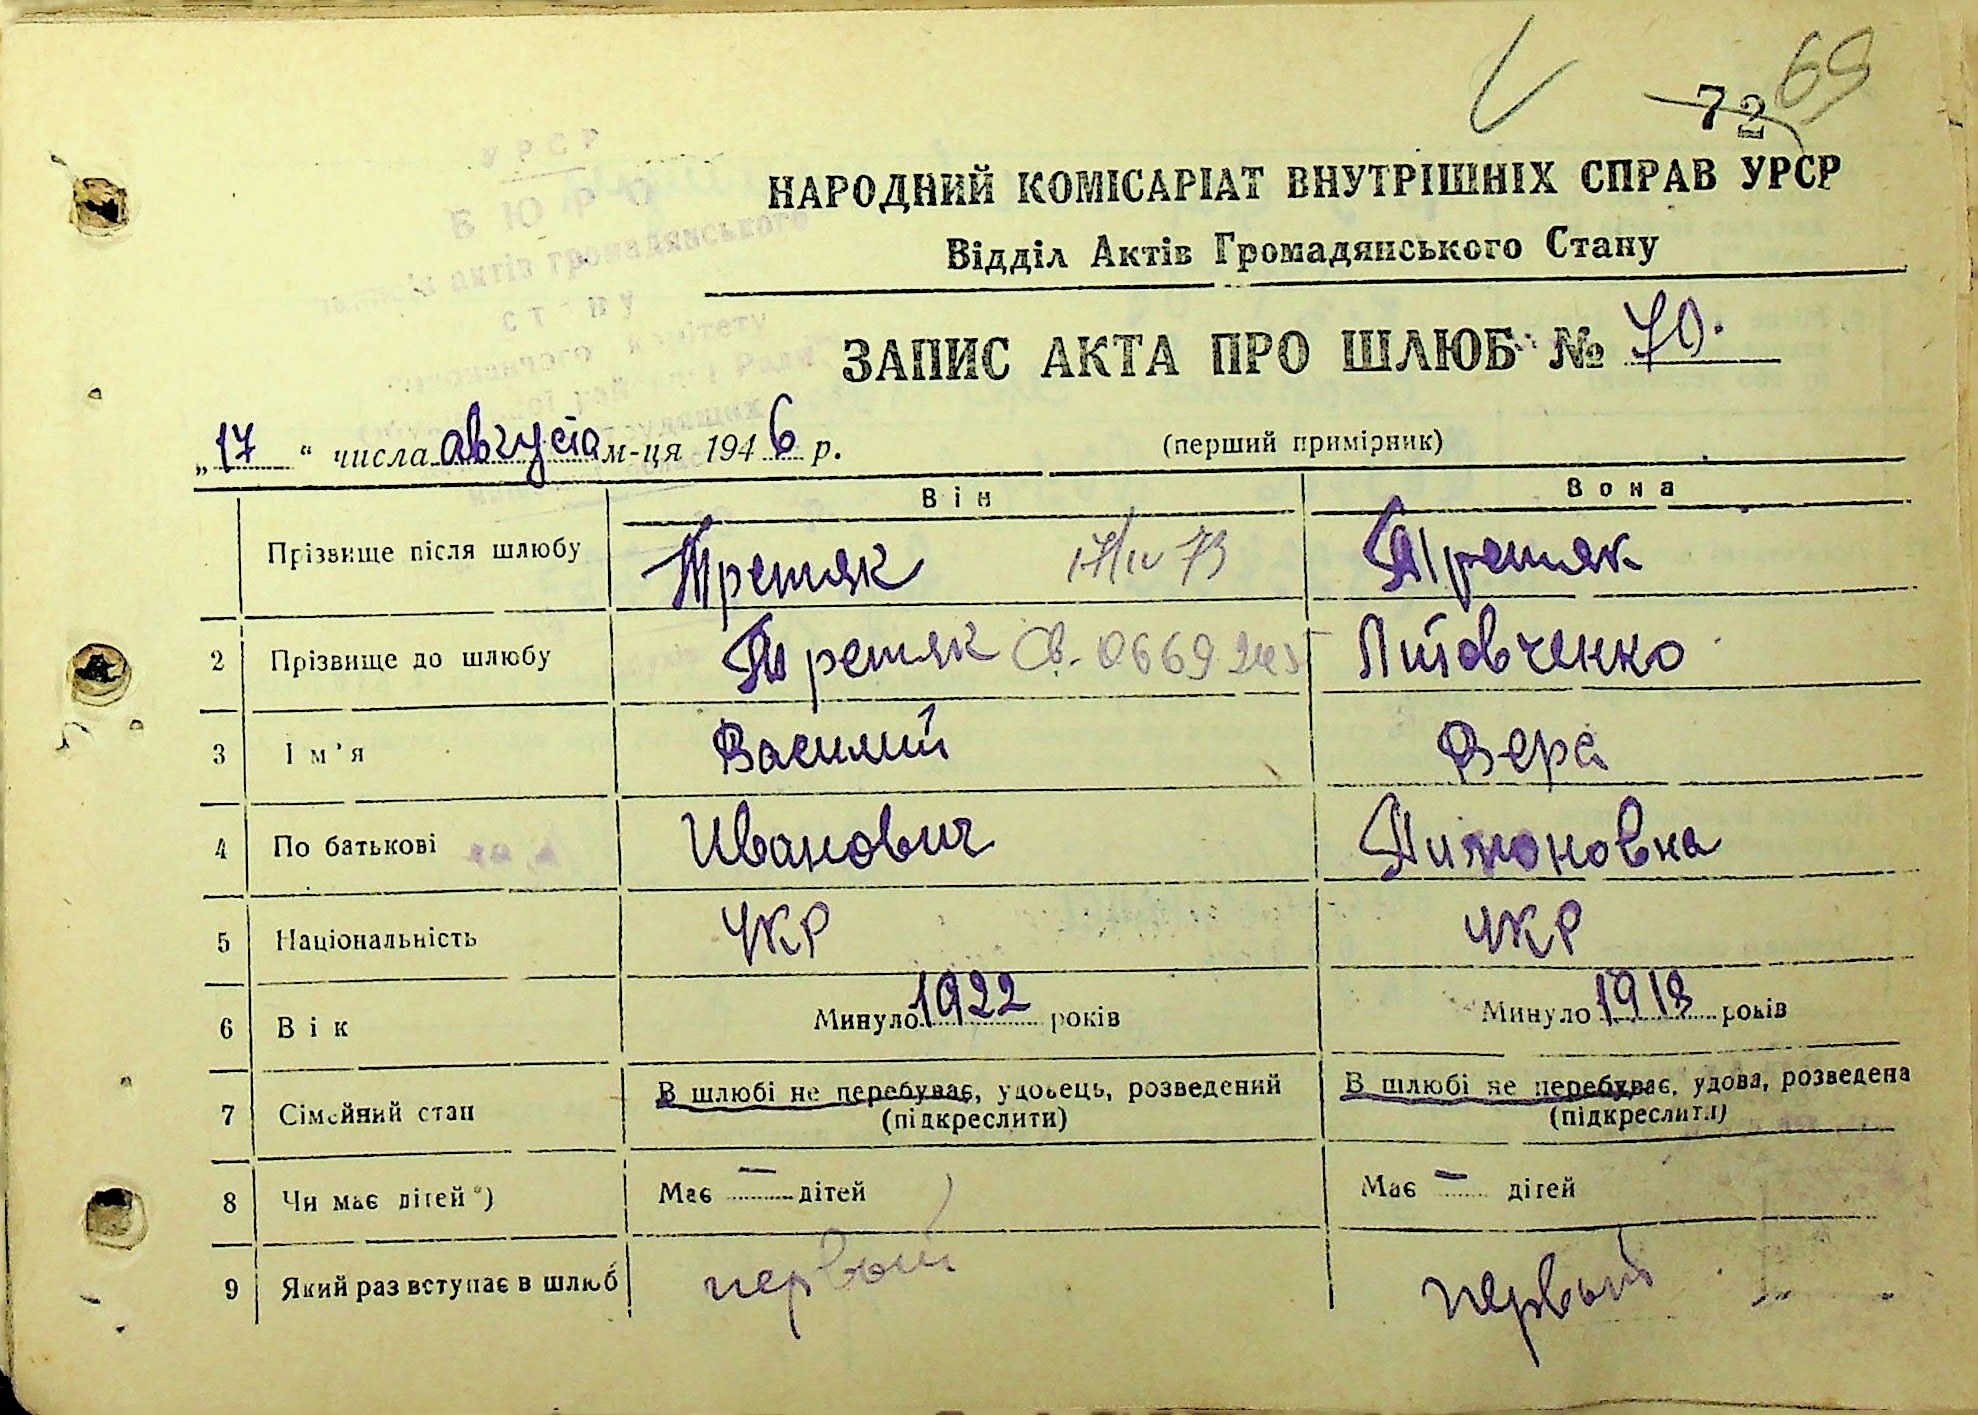 72 69
НАРОДНИЙ КОМІСАРІАТ ВНУТРІШНІХ СПРАВ УРСР
Відділ Актів Громадянського Стану
ЗАПИС АКТА ПРО ШЛЮБ № 70.
„17“ числа августа м-ця 1946 р. (перший примірник)
Він Вона
Прізвище після шлюбу Третяк 17/IV 73 Третяк
2 Прізвище до шлюбу Третяк Св. 0669245 Литовченко
3 Ім'я Василий Вера
4 По батькові Иванович Тимоновна
5 Національність УКР УКР
6 Вік Минуло 1922 років Минуло 1918 років
7 Сімейний стан В шлюбі не перебуває, удовець, розведений В шлюбі не перебуває, удова, розведена
(підкреслити) (підкреслити)
8 Чи має дітей*) Має — дітей Має — дітей
9 Який раз вступає в шлюб первый первый
УРСР
БЮРО
записів актів громадянського
стану